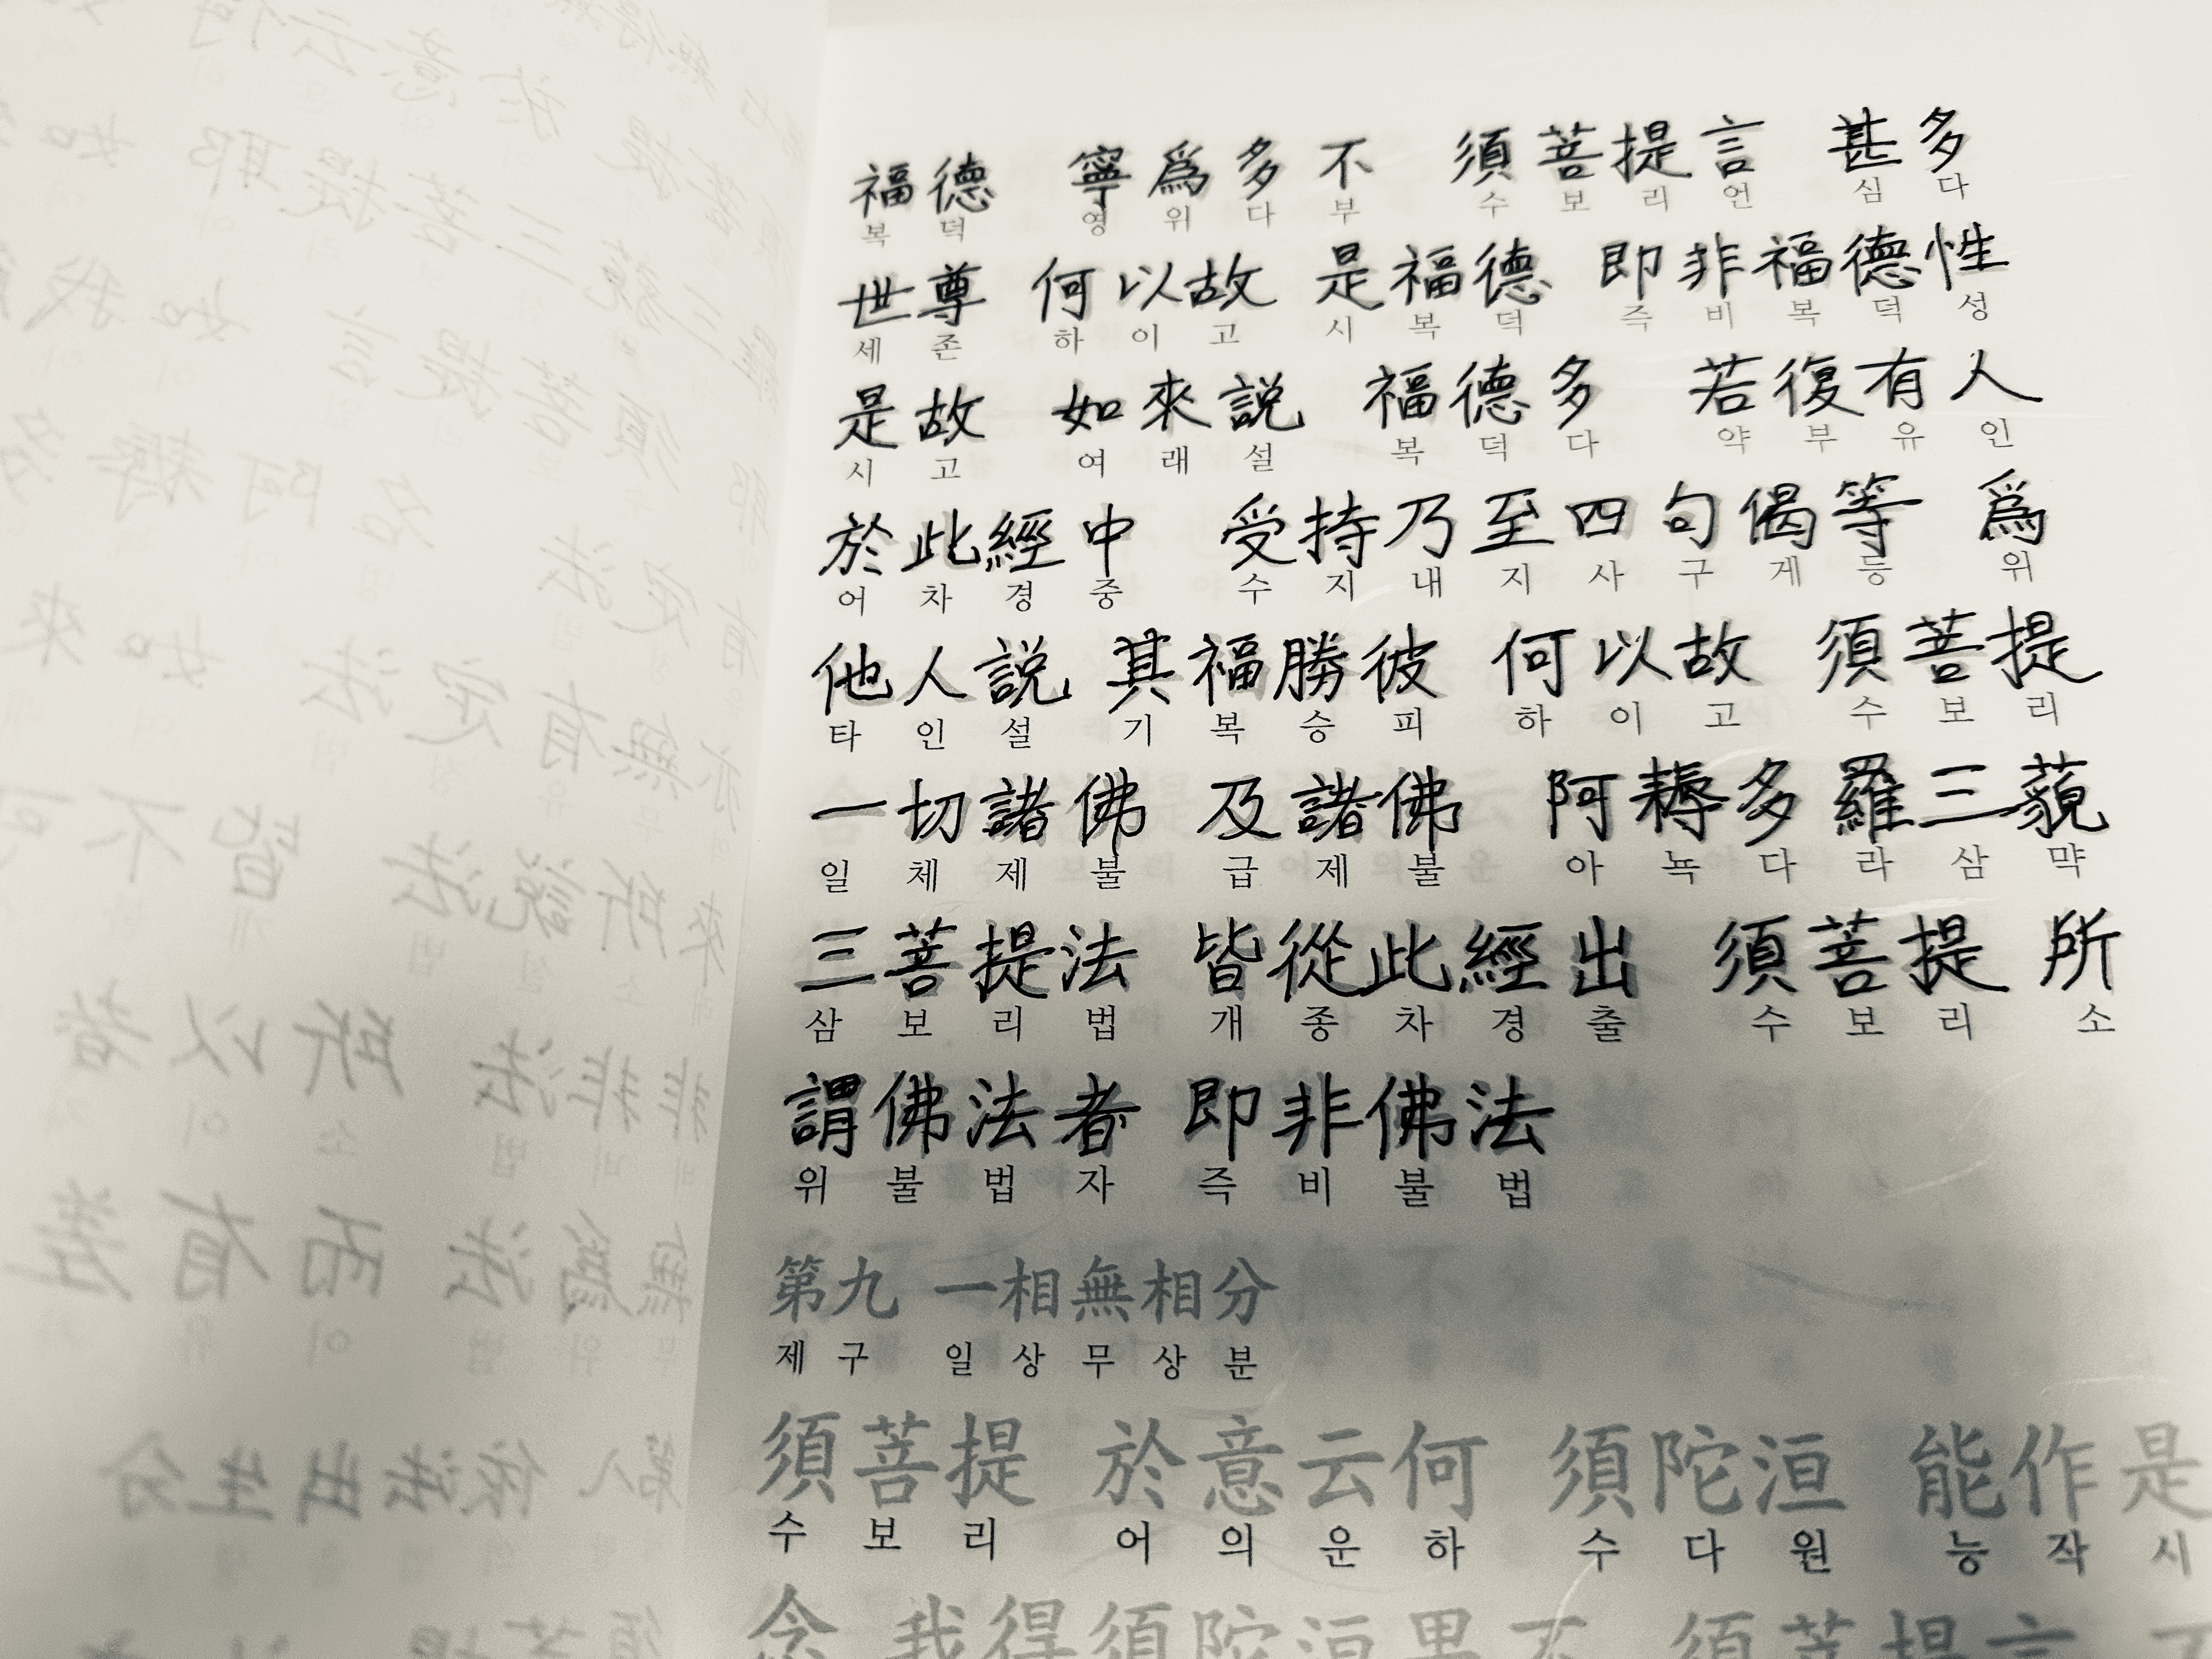 福德 寧爲多不 須菩提言 甚多
복덕 영위다부 수보리언 심다
世尊 何以故 是福德 即非福德性
세존 하이고 시복덕 즉비복덕성
是故 如來説 福德多 若復有人
시고 여래설 복덕다 약부유인
於此經中 受持乃至四句偈等 爲
어차경중 수지내지사구게등 위
他人説 其福勝彼 何以故 須菩提
타인설 기복승피 하이고 수보리
一切諸佛 及諸佛 阿耨多羅三藐
일체제불 급제불 아뇩다라삼먁
三菩提法 皆從此經出 須菩提 所
삼보리법 개종차경출 수보리 소
謂佛法者 即非佛法
위불법자 즉비불법
第九 一相無相分
제구 일상무상분
須菩提 於意云何 須陀洹 能作是
수보리 어의운하 수다원 능작시
念 我得須陀洹果不 須菩提言